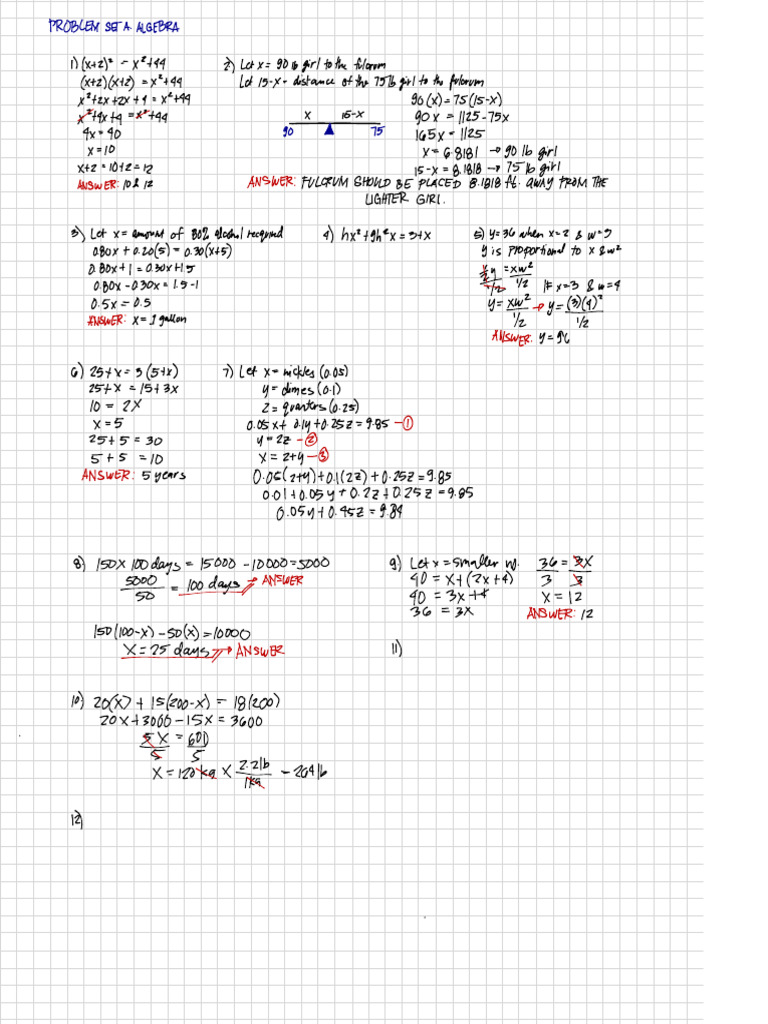 PROBLEM SET A. ALGEBRA
1) (x+2)² - x²+44
(x+2)(x+2) = x²+44
x²+2x+2x+4 = x²+44
x²+4x+4 = x²+44
4x = 40
x = 10
x+2 = 10+2 = 12
ANSWER: 10 & 12
2) Let x = 90 lb girl to the fulcrum
Let 15-x - distance of the 75 lb girl to the fulcrum
x 15-x
90 75
90(x) = 75(15-x)
90x = 1125-75x
165x = 1125
x = 6.8181 → 90 lb girl
15-x = 8.1818 → 75 lb girl
ANSWER: FULCRUM SHOULD BE PLACED 8.1818 ft. AWAY FROM THE
LIGHTER GIRL.
3) Let x = amount of 80% alcohol required
0.80x + 0.20(5) = 0.30(x+5)
0.80x + 1 = 0.30x + 1.5
0.80x - 0.30x = 1.5 - 1
0.5x = 0.5
ANSWER: x = 1 gallon
4) hx²+9h²x = 3+x
5) y = 36 when x = 2 & w = 3
y is proportional to x & w²
y = xw²
1/2 1/2
If x = 3 & w = 4
y = xw² → y = (3)(4)²
1/2 1/2
ANSWER: y = 96
6) 25+x = 3(5+x)
25+x = 15+3x
10 = 2x
x = 5
25+5 = 30
5+5 = 10
ANSWER: 5 years
7) Let x = nickles (0.05)
y = dimes (0.1)
z = quarters (0.25)
0.05x + 0.1y + 0.25z = 9.85 - ①
y = 2z - ②
x = 2+y - ③
0.05(2+y)+0.1(2z)+0.25z = 9.85
0.01+0.05y+0.2z+0.25z = 9.85
0.05y+0.45z = 9.84
8) 150 x 100 days = 15000 - 10000 = 5000
5000 = 100 days → ANSWER
50
150(100-x) - 50(x) = 10000
x = 25 days → ANSWER
9) Let x = smaller no.
40 = x+(2x+4)
40 = 3x+4
36 = 3x
36 = 3x
3 3
x = 12
ANSWER: 12
11)
10) 20(x) + 15(200-x) = 18(200)
20x+3000-15x = 3600
5x = 600
5 5
x = 120 kg x 2.2 lb - 264 lb
1 kg
12)